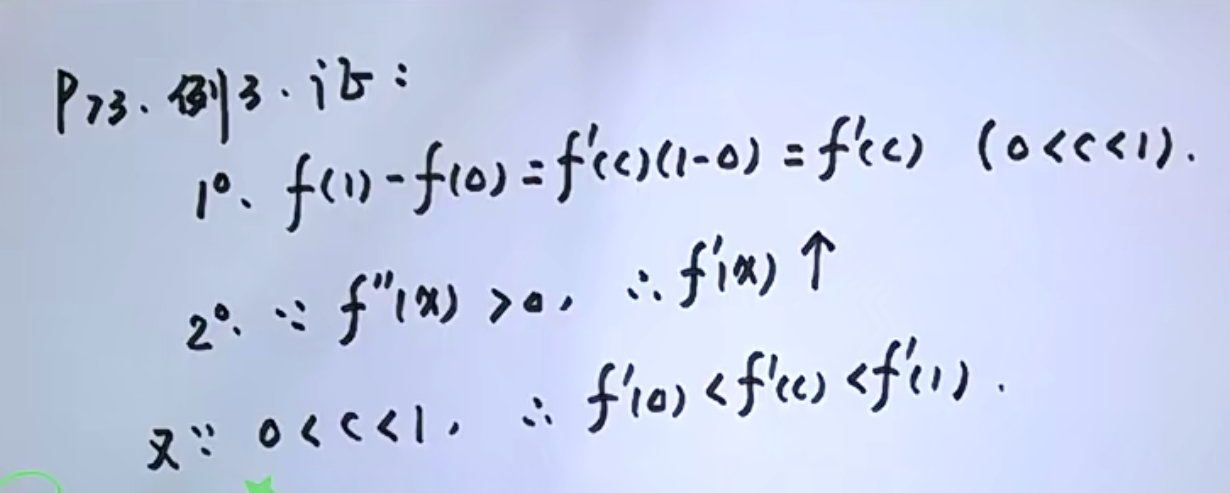 P73. 例3. 证:
1°. f(1)-f(0)=f'(c)(1-0)=f'(c) (0<c<1).
2°. ∵ f''(x)>0, ∴ f'(x)↑
又∵ 0<c<1, ∴ f'(0)<f'(c)<f'(1).